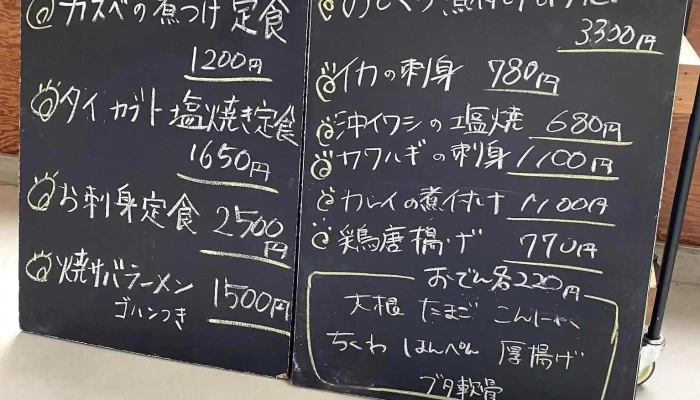 カスベの煮つけ定食
1200円
タイカブト塩焼き定食
1650円
お刺身定食 2500円
焼サバラーメン 1500円
ゴハンつき
3300円
イカの刺身 780円
沖イワシの塩焼 680円
カワハギの刺身 1100円
カレイの煮付け 1100円
鶏唐揚げ 770円
おでん各220円
大根 たまご こんにゃく
ちくわ はんぺん 厚揚げ
ブタ軟骨